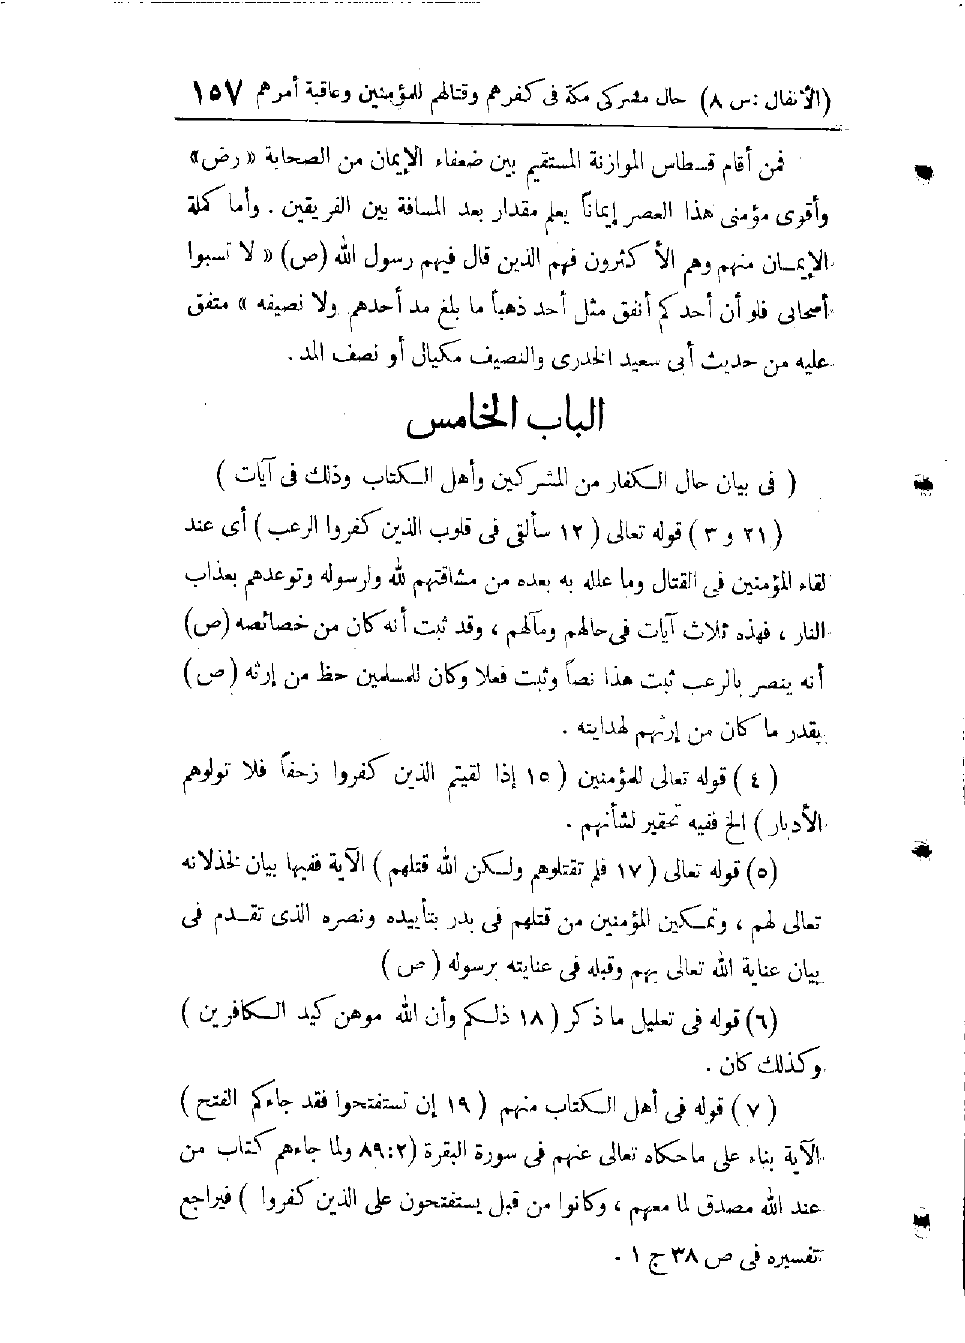 (الأنفال : س ٨) حال مشركى مكة فى كفرهم وقتالهم للمؤمنين وعاقبة أمرهم ١٥٧
فمن أقام قسطاس الموازنة المستقيم بين ضعفاء الإيمان من الصحابة « رض »
وأقوى مؤمنى هذا العصر إيماناً يعلم مقدار بعد المسافة بين الفريقين . وأما كملة
الإيمـان منهم وهم الأكثرون فهم الذين قال فيهم رسول الله (ص) « لا تسبوا
أصحابى فلو أن أحدكم أنفق مثل أحد ذهباً ما بلغ مد أحدهم ولا نصيفه » متفق
عليه من حديث أبى سعيد الخدرى والنصيف مكيال أو نصف المد .
الباب الخامس
( فى بيان حال الـكفار من المشركين وأهل الـكتاب وذلك فى آيات )
(٢١ و ٣ ) قوله تعالى ( ١٢ سألقى فى قلوب الذين كفروا الرعب ) أى عند
لقاء المؤمنين فى القتال وما علله به بعده من مشاقتهم لله ولرسوله وتوعدهم بعذاب
النار ، فهذه ثلاث آيات فى حالهم ومآلهم ، وقد ثبت أنه كان من خصائصه (ص)
أنه ينصر بالرعب ثبت هذا نصاً وثبت فعلا وكان للمسلمين حظ من إرثه (ص)
بقدر ما كان من إرثهم لهدايته .
( ٤ ) قوله تعالى للمؤمنين ( ١٥ إذا لقيتم الذين كفروا زحفاً فلا تولوهم
الأدبار ) الخ ففيه تحقير لشأنهم .
(٥) قوله تعالى ( ١٧ فلم تقتلوهم ولـكن الله قتلهم ) الآية ففيها بيان لخذلانه
تعالى لهم ، وتمـكين المؤمنين من قتلهم فى بدر بتأييده ونصره الذى تقـدم فى
بيان عناية الله تعالى بهم وقبله فى عنايته برسوله ( ص )
(٦) قوله فى تعليل ما ذكر ( ١٨ ذلـكم وأن الله موهن كيد الـكافرين )
وكذلك كان .
( ٧ ) قوله فى أهل الـكتاب منهم ( ١٩ إن تستفتحوا فقد جاءكم الفتح )
الآية بناء على ما حكاه تعالى عنهم فى سورة البقرة (٢ : ٨٩ ولما جاءهم كتاب من
عند الله مصدق لما معهم ، وكانوا من قبل يستفتحون على الذين كفروا ) فيراجع
تفسيره فى ص ٣٨ ج ١ .